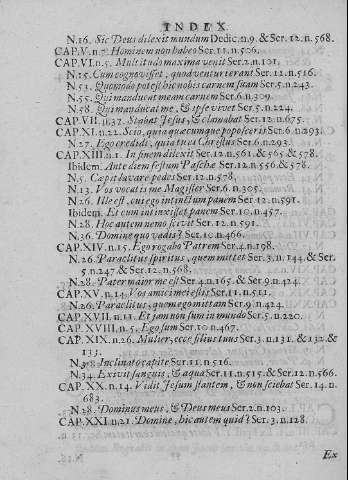 INDEX
N.16. Sic Deus dilexit mundum Dedic.n.9. & Ser.12.n.568.
CAP.V.n.7. Hominem non habeo Ser.11.n.506.
CAP.VI.n.5. Multitudo maxima venit Ser.2.n.101.
N.15. Cum cognovisset, quod venturi erant Ser.12.n.516.
N.51. Quomodo potest hic nobis carnem suam Ser.5.n.243.
N.55. Qui manducat meam carnem Ser.6.n.309.
N.58. Qui manducat me, & ipse vivet Ser.5.n.224.
CAP.VII.n.37. Stabat Jesus, & clamabat Ser.12.n.675.
CAP.XI.n.22. Scio, quia quæcumque poposceris Ser.6.n.293.
N.27. Ego credidi, quia tu es Christus Ser.6.n.293.
CAP.XIII.n.1. In finem dilexit Ser.12.n.561. & 565. & 578.
Ibidem. Ante diem festum Paschæ Ser.12.n.556. & 578.
N.5. Cæpit lavare pedes Ser.12.n.578.
N.13. Vos vocatis me Magister Ser.6.n.305.
N.26. Ille est, cui ego intinctum panem Ser.12.n.591.
Ibidem. Et cum intinxisset panem Ser.10.n.457.
N.28. Hoc autem nemo scivit Ser.12.n.591.
N.36. Domine quo vadis? Ser.10.n.466.
CAP.XIV.n.15. Ego rogabo Patrem Ser.4.n.198.
N.26. Paraclitus spiritus, quem mittet Ser.3.n.144. & Ser.
5.n.247. & Ser.12.n.568.
N.28. Pater maior me est Ser.4.n.165. & Ser.9.n.424.
CAP.XV.n.14. Vos amici mei estis Ser.11.n.511.
N.26. Paraclitus, quem ego mittam Ser.9.n.424.
CAP.XVII.n.11. Et jam non sum in mundo Ser.5.n.220.
CAP.XVIII.n.5. Ego sum Ser.10.n.467.
CAP.XIX.n.26. Mulier, ecce filius tuus Ser.3.n.131. & 132. &
133.
Inclinato capite Ser.11.n.516.
N.34. Exivit sanguis, & aqua Ser.11.n.515. & Ser.12.n.566.
CAP.XX.n.14. Vidit Jesum stantem, & non sciebat Ser.14.n.
683.
N.28. Dominus meus, & Deus meus Ser.2.n.103.
CAP.XXI.n.21. Domine, hic autem quid? Ser.3.n.128.
Ex